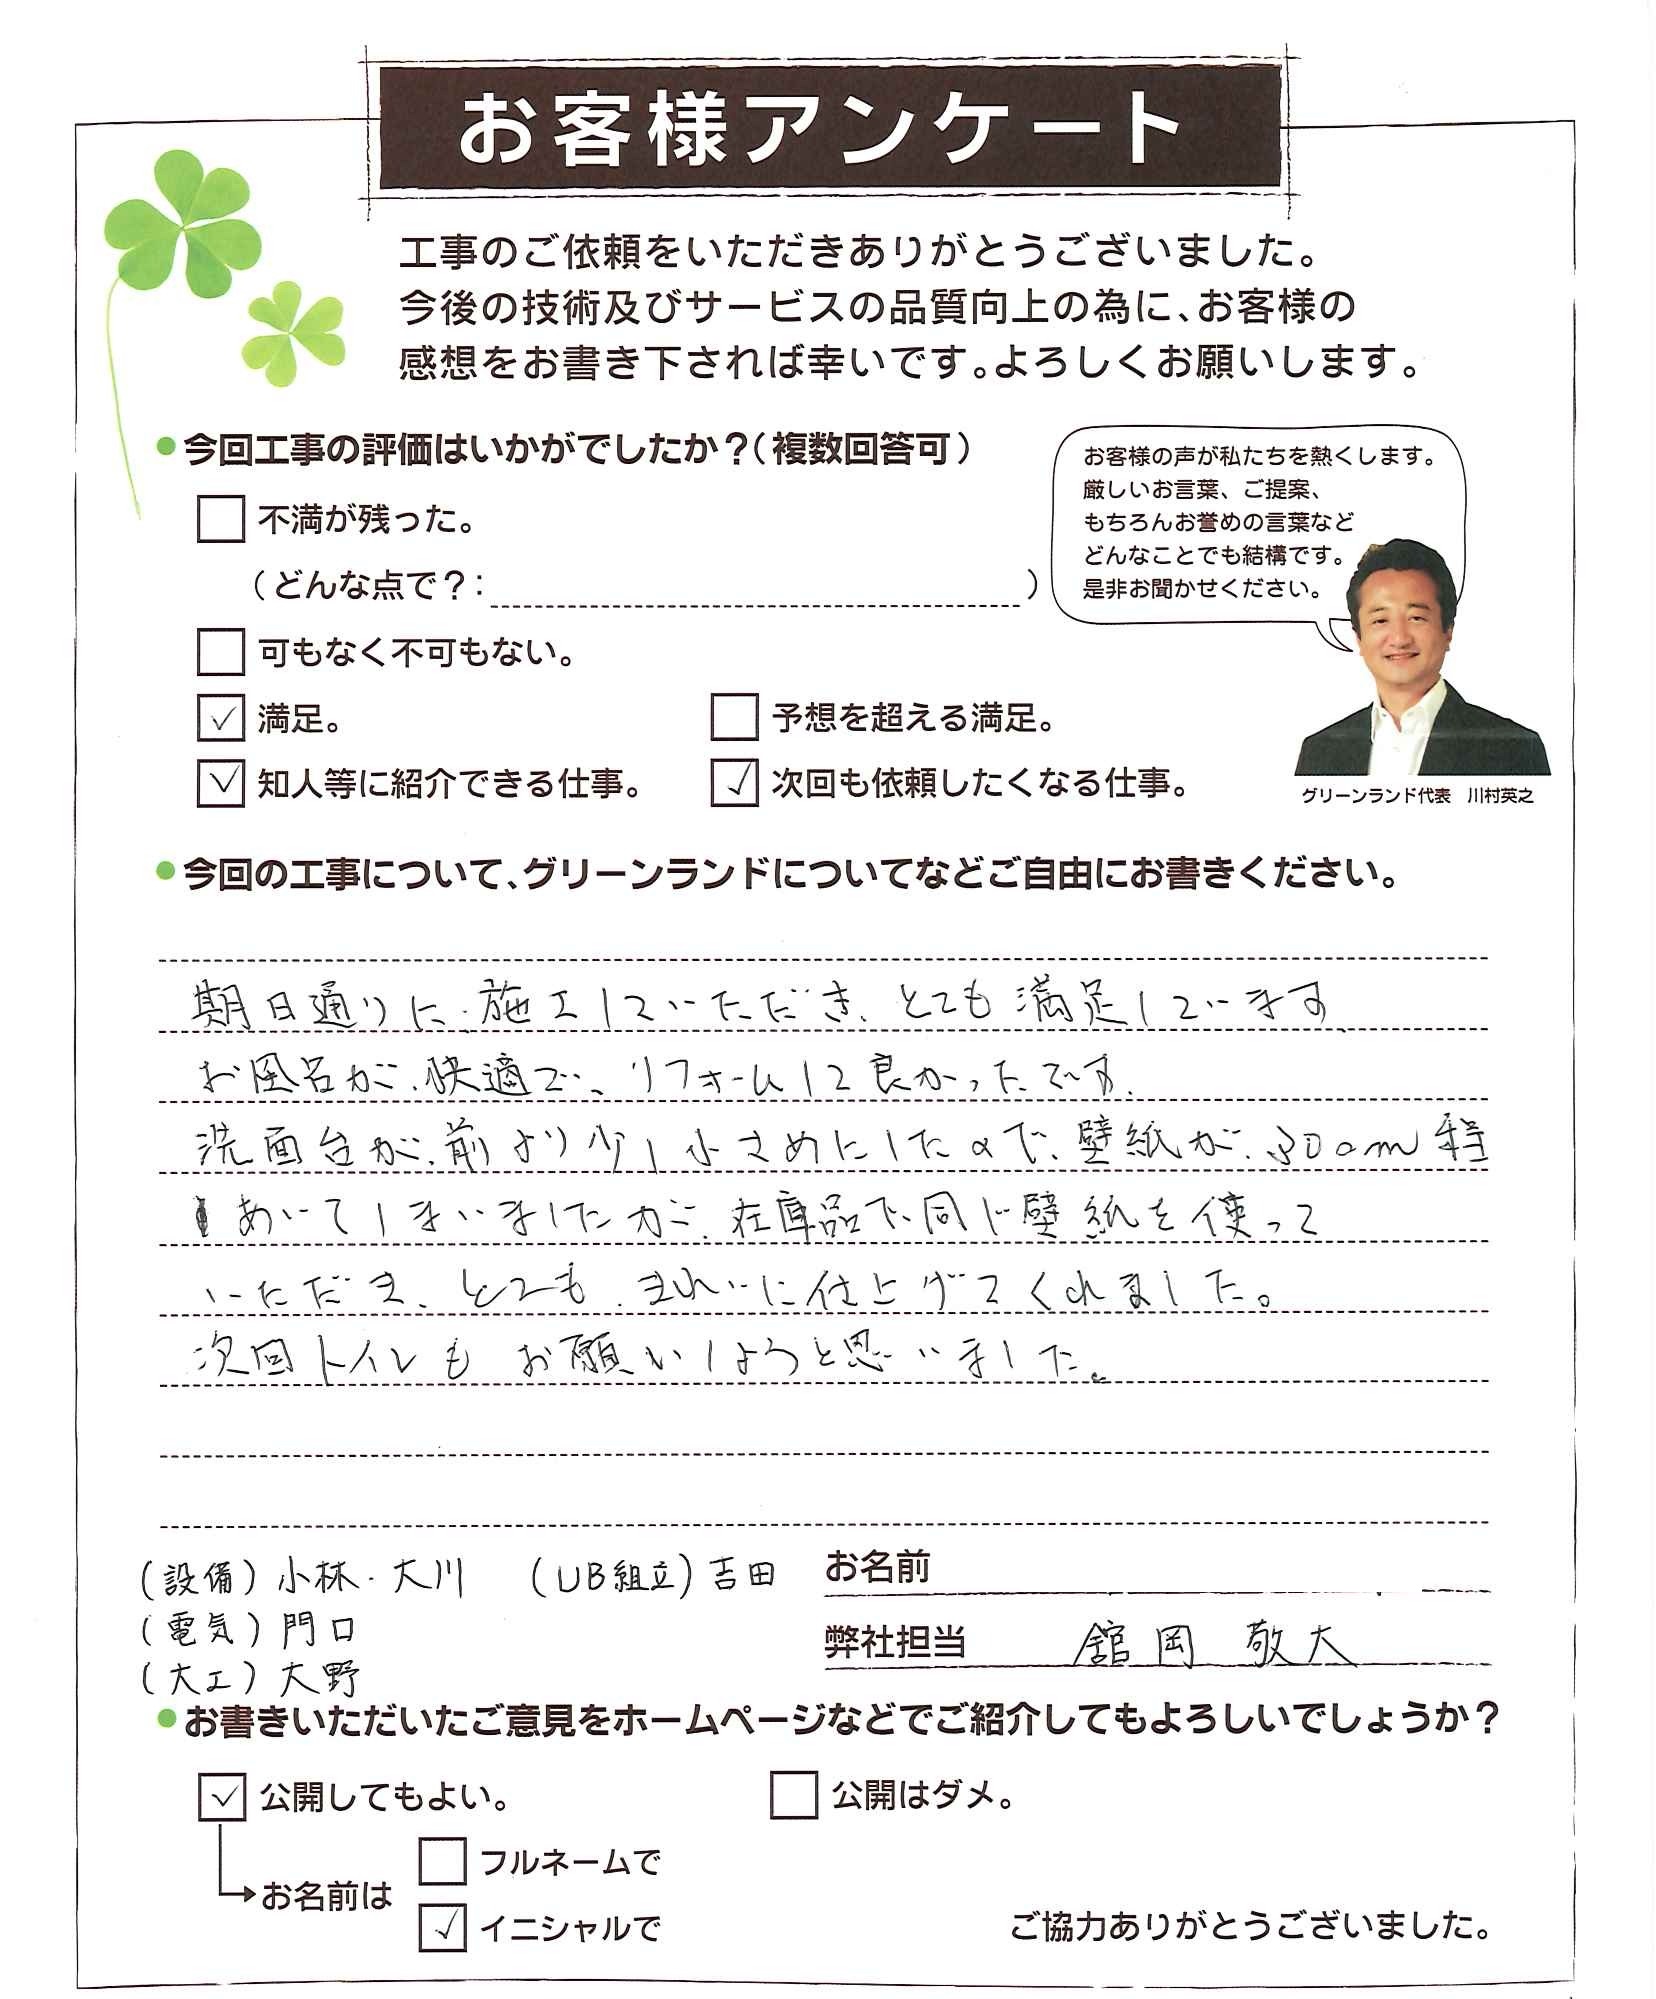 お客様アンケート
工事のご依頼をいただきありがとうございました。
今後の技術及びサービスの品質向上の為に、お客様の
感想をお書き下されれば幸いです。よろしくお願いします。
●今回工事の評価はいかがでしたか？（複数回答可）
お客様の声が私たちを熱くします。
厳しいお言葉、ご提案、
もちろんお誉めの言葉など
どんなことでも結構です。
是非お聞かせください。
不満が残った。
（どんな点で？：）
可もなく不可もない。
✓ 満足。
予想を超える満足。
✓ 知人等に紹介できる仕事。
✓ 次回も依頼したくなる仕事。
グリーンランド代表 川村英之
●今回の工事について、グリーンランドについてなどご自由にお書きください。
期日通りに、施工していただき、とても満足しています
お風呂が、快適で、リフォームして良かったです。
洗面台が、前より少し小さめにしたので、壁紙が、30cm程
あいてしまいましたが、在庫品で、同じ壁紙を使って
いただき、とても、きれいに仕上げてくれました。
次回トイレも お願いしようと思いました。
（設備）小林・大川 （UB組立）吉田
（電気）門口
（大工）大野
お名前
弊社担当 舘岡 敬大
●お書きいただいたご意見をホームページなどでご紹介してもよろしいでしょうか？
✓ 公開してもよい。
公開はダメ。
→お名前は
フルネームで
✓ イニシャルで
ご協力ありがとうございました。